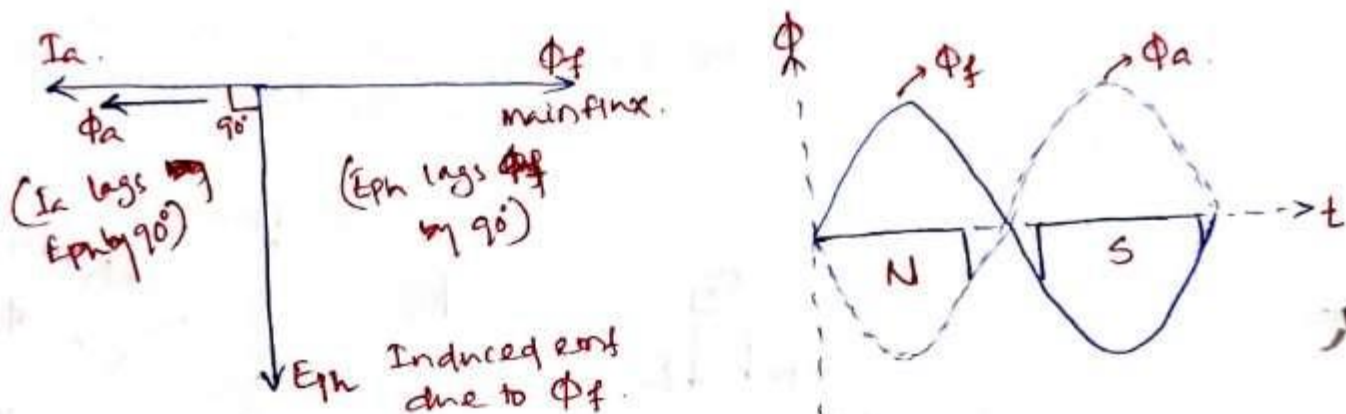 Ia.
Φf
main flux.
Φa
90°
(Ia lags
Eph by 90°)
(Eph lags Φf
by 90°)
Eph Induced emf
due to Φf.
Φ
Φf
Φa.
t
N
S